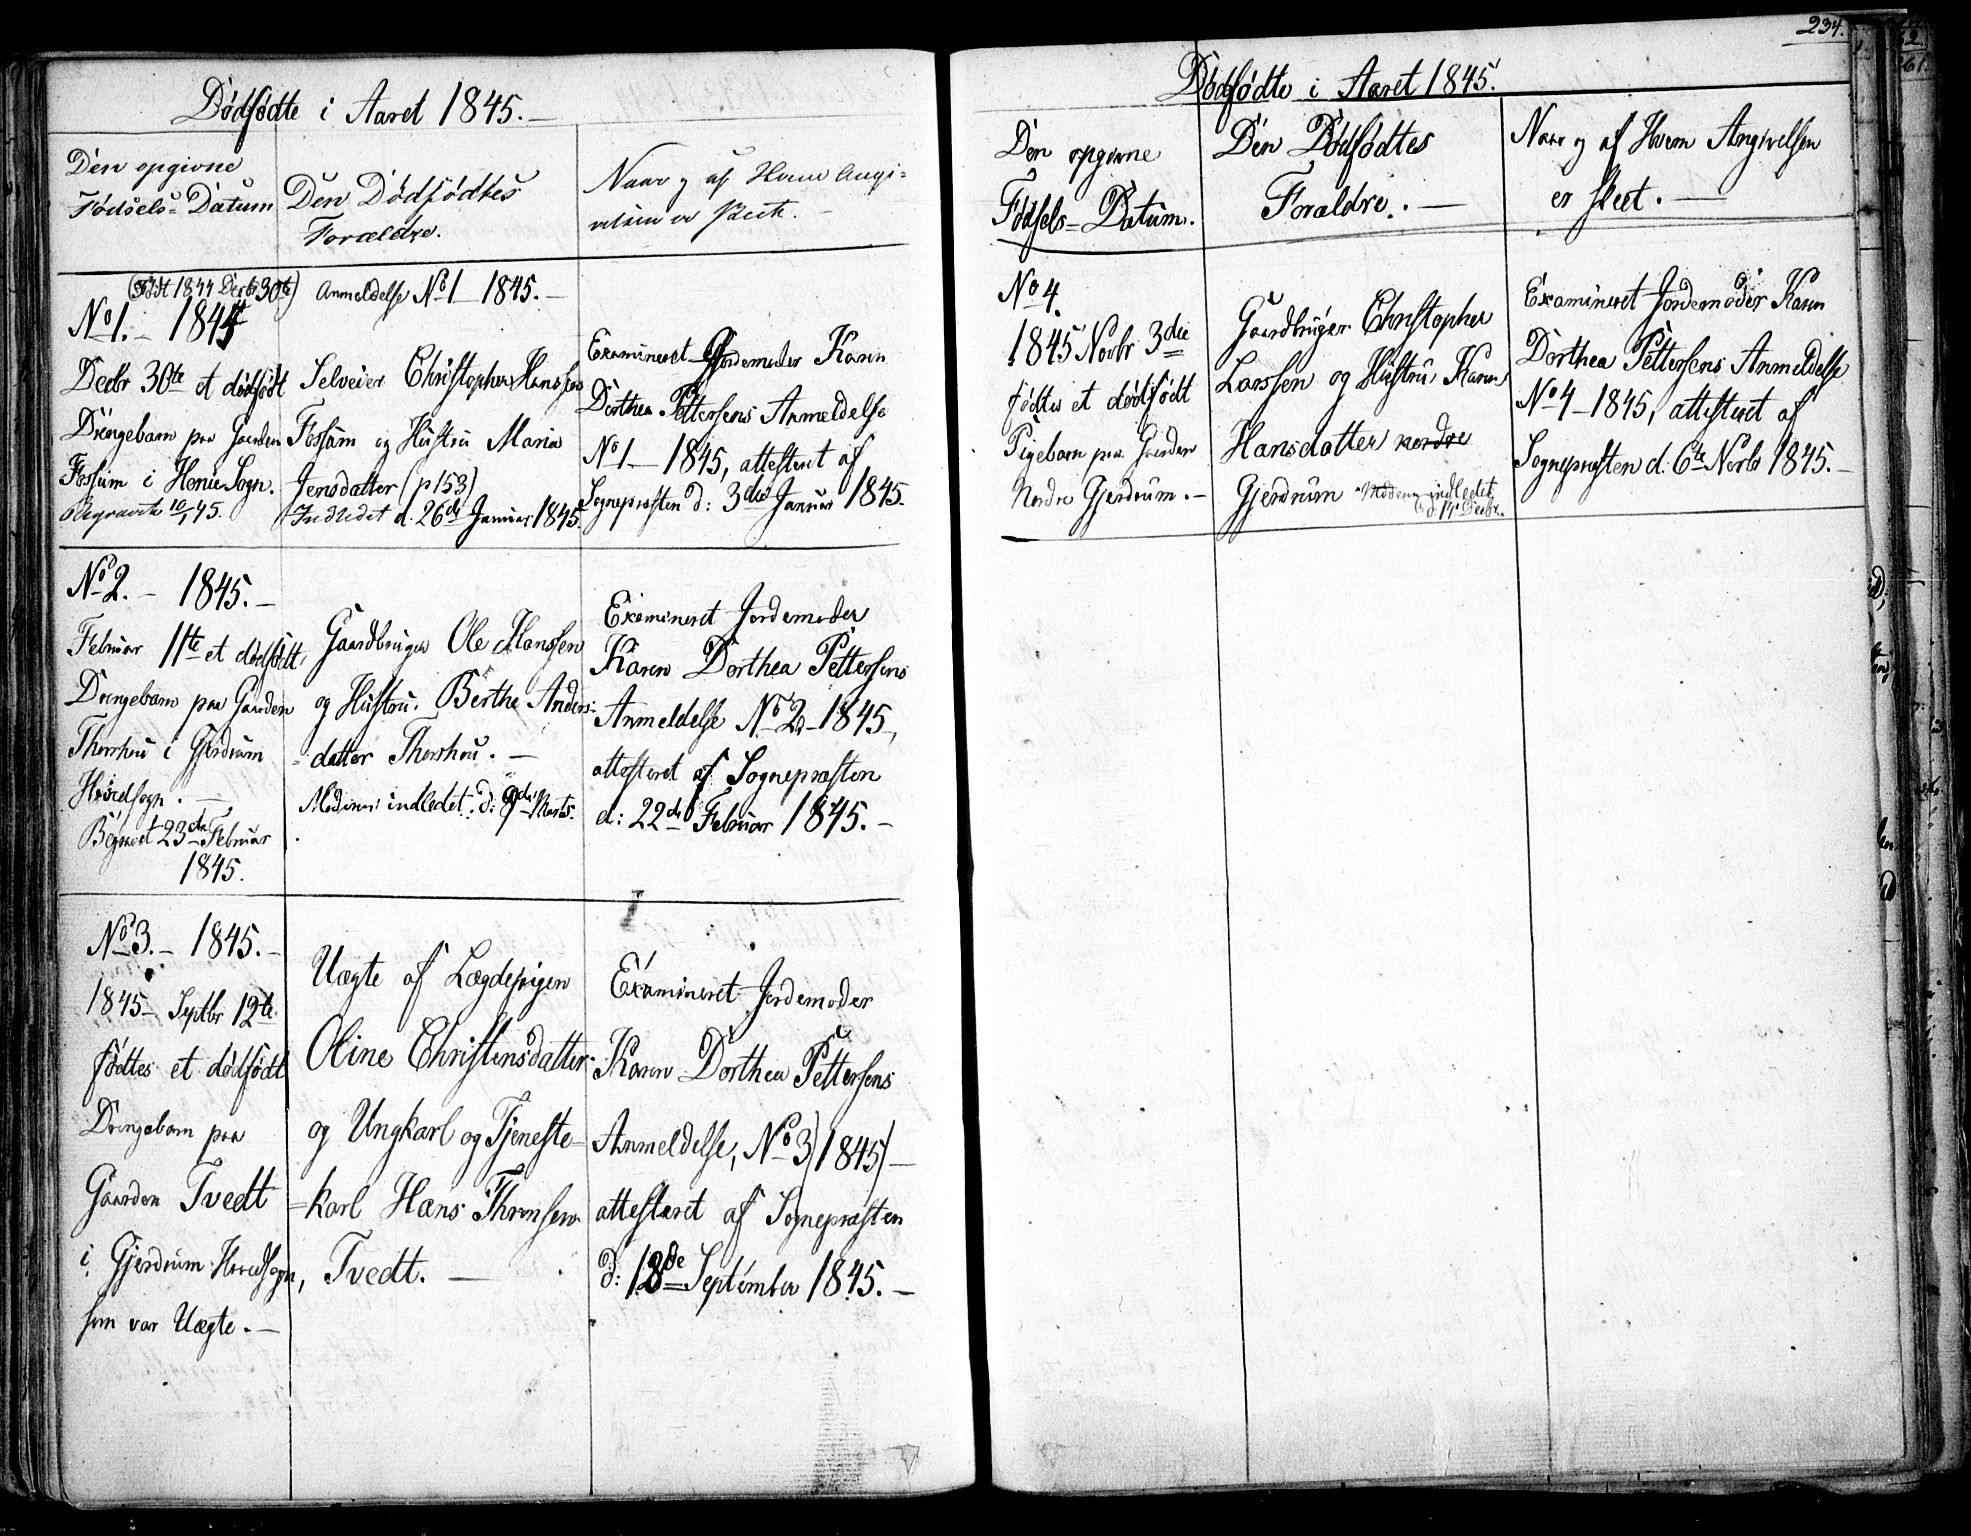 Dødfødte i Aaret 1845.—
Den opgivne
Fødsels=Datum
Den Dødfødtes
Forældre.
Naar og af Hvem Angi=
velsen er skeet.—
(Født 1844 Decbr 30te)
No 1.— 1844
Decbr 30te et dødfødt
Drengebarn paa Gaarden
Fossum i Heni Sogn.
Begravet 10/1 45.
Anmeldelse No 1— 1845.—
Selveier Christopher Hanssen
Fossum og Hustru Maria
Jensdatter (p 153)
Indledet d. 26de Januar 1845.
Examineret Jordemoder Karen
Dorthea Pettersens Anmeldelse
No 1— 1845, attesteret af
Sognepræsten d: 3die Januar 1845.
No 2.— 1845.—
Februar 11te et dødfødt
Drengebarn paa Gaarden
Thorshou i Gjerdrum
Hovedsogn.—
Begravet 23de Februar
1845.
Gaardbruger Ole Hanssen
og Hustru Berthe Anders=
=datter Thorshou.—
Moderen indledet d: 9de Marts.
Examineret Jordemoder
Karen Dorthea Pettersens
Anmeldelse No 2— 1845,
attesteret af Sognepræsten
d: 22de Februar 1845.—
No 3.— 1845.—
1845— Septbr 12te
fødtes et dødfødt
Drengebarn paa
Gaarden Tvedt
i Gjerdrum Hovedsogn,
som var Uægte.—
Uægte af Lægdepigen
Oline Christensdatter
og Ungkarl og Tjeneste=
=karl Hans
Tvedt.—
Examineret Jordemoder
Karen Dorthea Pettersens
Anmeldelse, No 3) 1845)—
attesteret af Sognepræsten
d: 18de September 1845.—
234.
Dødfødte i Aaret 1845.
Den opgivne
Fødsels=Datum.
Den Dødfødtes
Forældre.—
Naar og af Hvem Angivelsen
er skeet.—
No 4.
1845 Novbr 3die
fødtes et dødfødt
Pigebarn paa Gaarden
Nordre Gjerdrum.—
Gaardbruger Christopher
Larssen og Hustru Karen
Hansdatter nordre
Gjerdrum Moderen indledet
d: 14 Decbr.
Examineret Jordemoder Karen
Dorthea Pettersens Anmeldelse
No 4— 1845, attesteret af
Sognepræsten d. 6te Novbr 1845.—